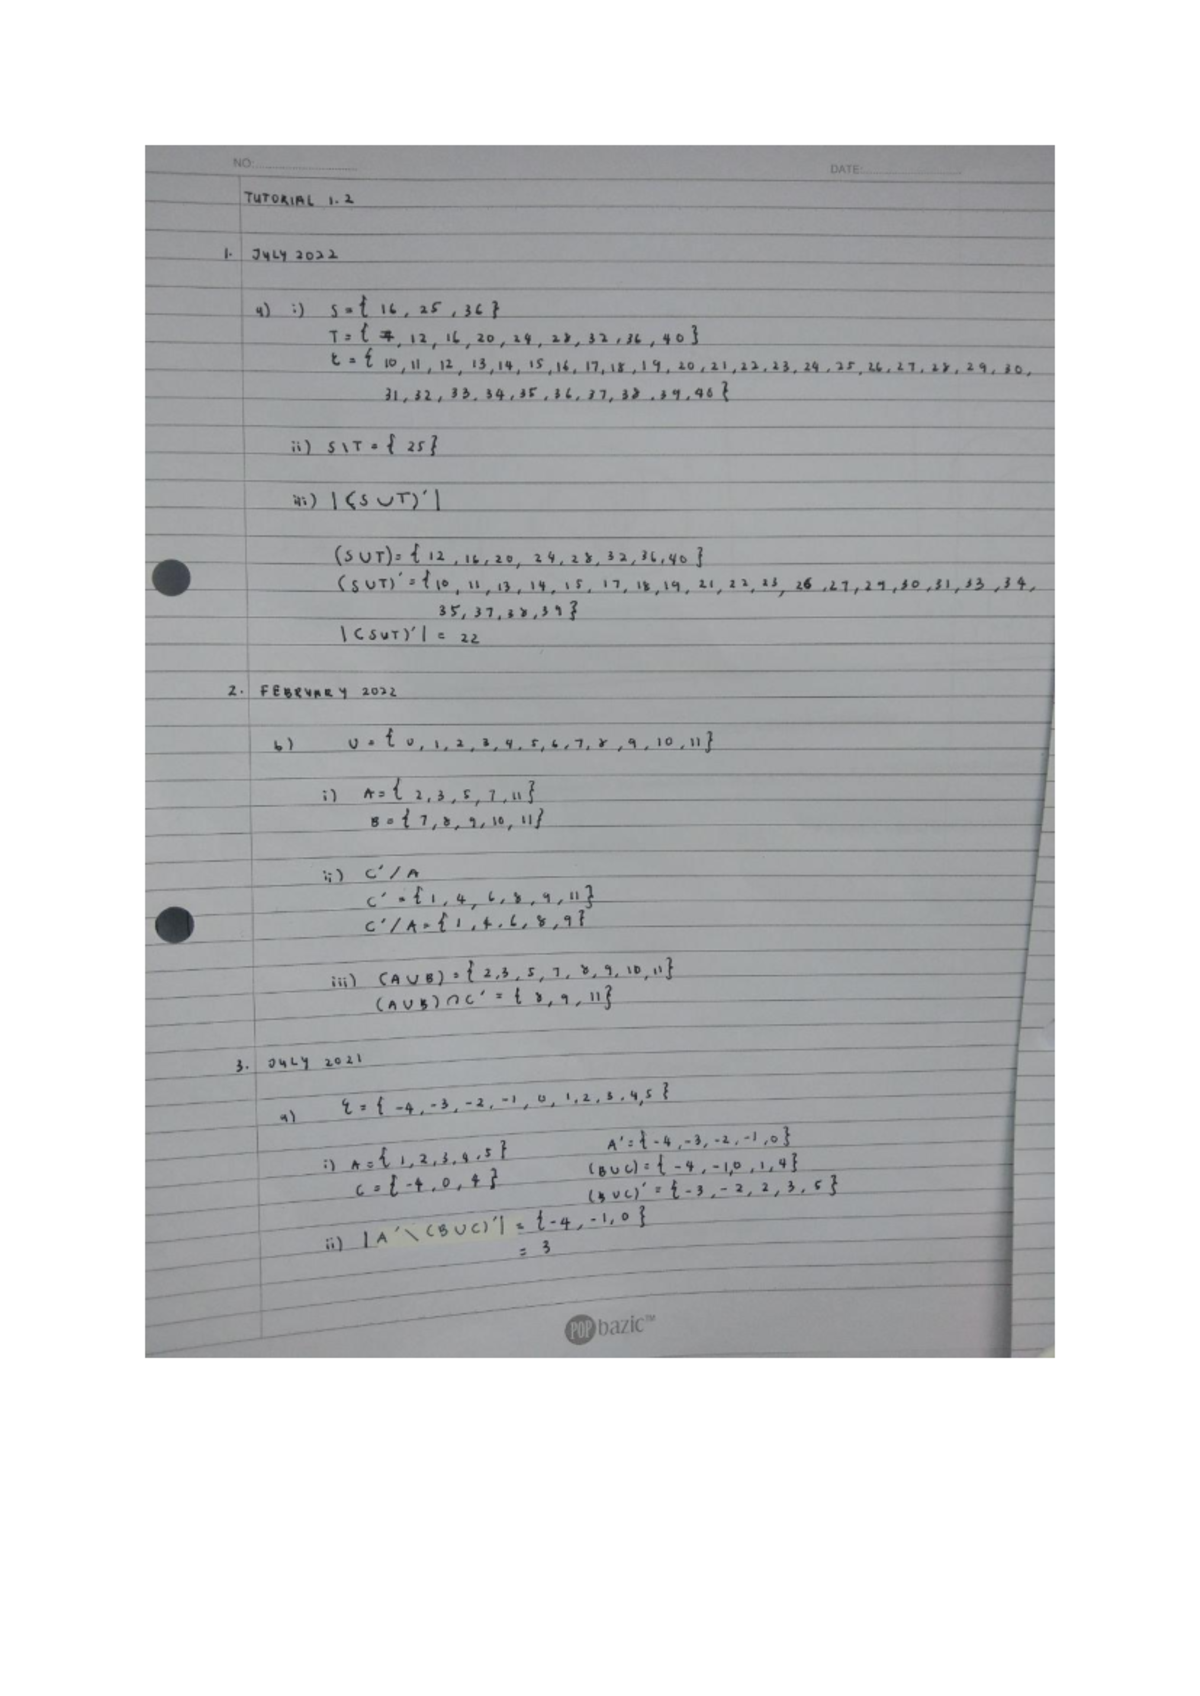 NO:
DATE:
TUTORIAL 1.2
1. JULY 2022
a) i) S = { 16, 25, 36 }
T = { 12, 16, 20, 24, 28, 32, 36, 40 }
ξ = { 10, 11, 12, 13, 14, 15, 16, 17, 18, 19, 20, 21, 22, 23, 24, 25, 26, 27, 28, 29, 30,
31, 32, 33, 34, 35, 36, 37, 38, 39, 40 }
ii) S \ T = { 25 }
iii) | (S ∪ T)' |
(S ∪ T) = { 12, 16, 20, 24, 28, 32, 36, 40 }
(S ∪ T)' = { 10, 11, 13, 14, 15, 17, 18, 19, 21, 22, 23, 26, 27, 29, 30, 31, 33, 34,
35, 37, 38, 39 }
| (S ∪ T)' | = 22
2. FEBRUARY 2022
b) U = { 0, 1, 2, 3, 4, 5, 6, 7, 8, 9, 10, 11 }
i) A = { 2, 3, 5, 7, 11 }
B = { 7, 8, 9, 10, 11 }
ii) C' / A
C' = { 1, 4, 6, 8, 9, 11 }
C' / A = { 1, 4, 6, 8, 9 }
iii) (A ∪ B) = { 2, 3, 5, 7, 8, 9, 10, 11 }
(A ∪ B) ∩ C' = { 8, 9, 11 }
3. JULY 2021
a) ξ = { -4, -3, -2, -1, 0, 1, 2, 3, 4, 5 }
i) A = { 1, 2, 3, 4, 5 }
C = { -4, 0, 4 }
A' = { -4, -3, -2, -1, 0 }
(B ∪ C) = { -4, -1, 0, 1, 4 }
(B ∪ C)' = { -3, -2, 2, 3, 5 }
ii) | A' \ (B ∪ C)' | = { -4, -1, 0 }
= 3
POP bazic™